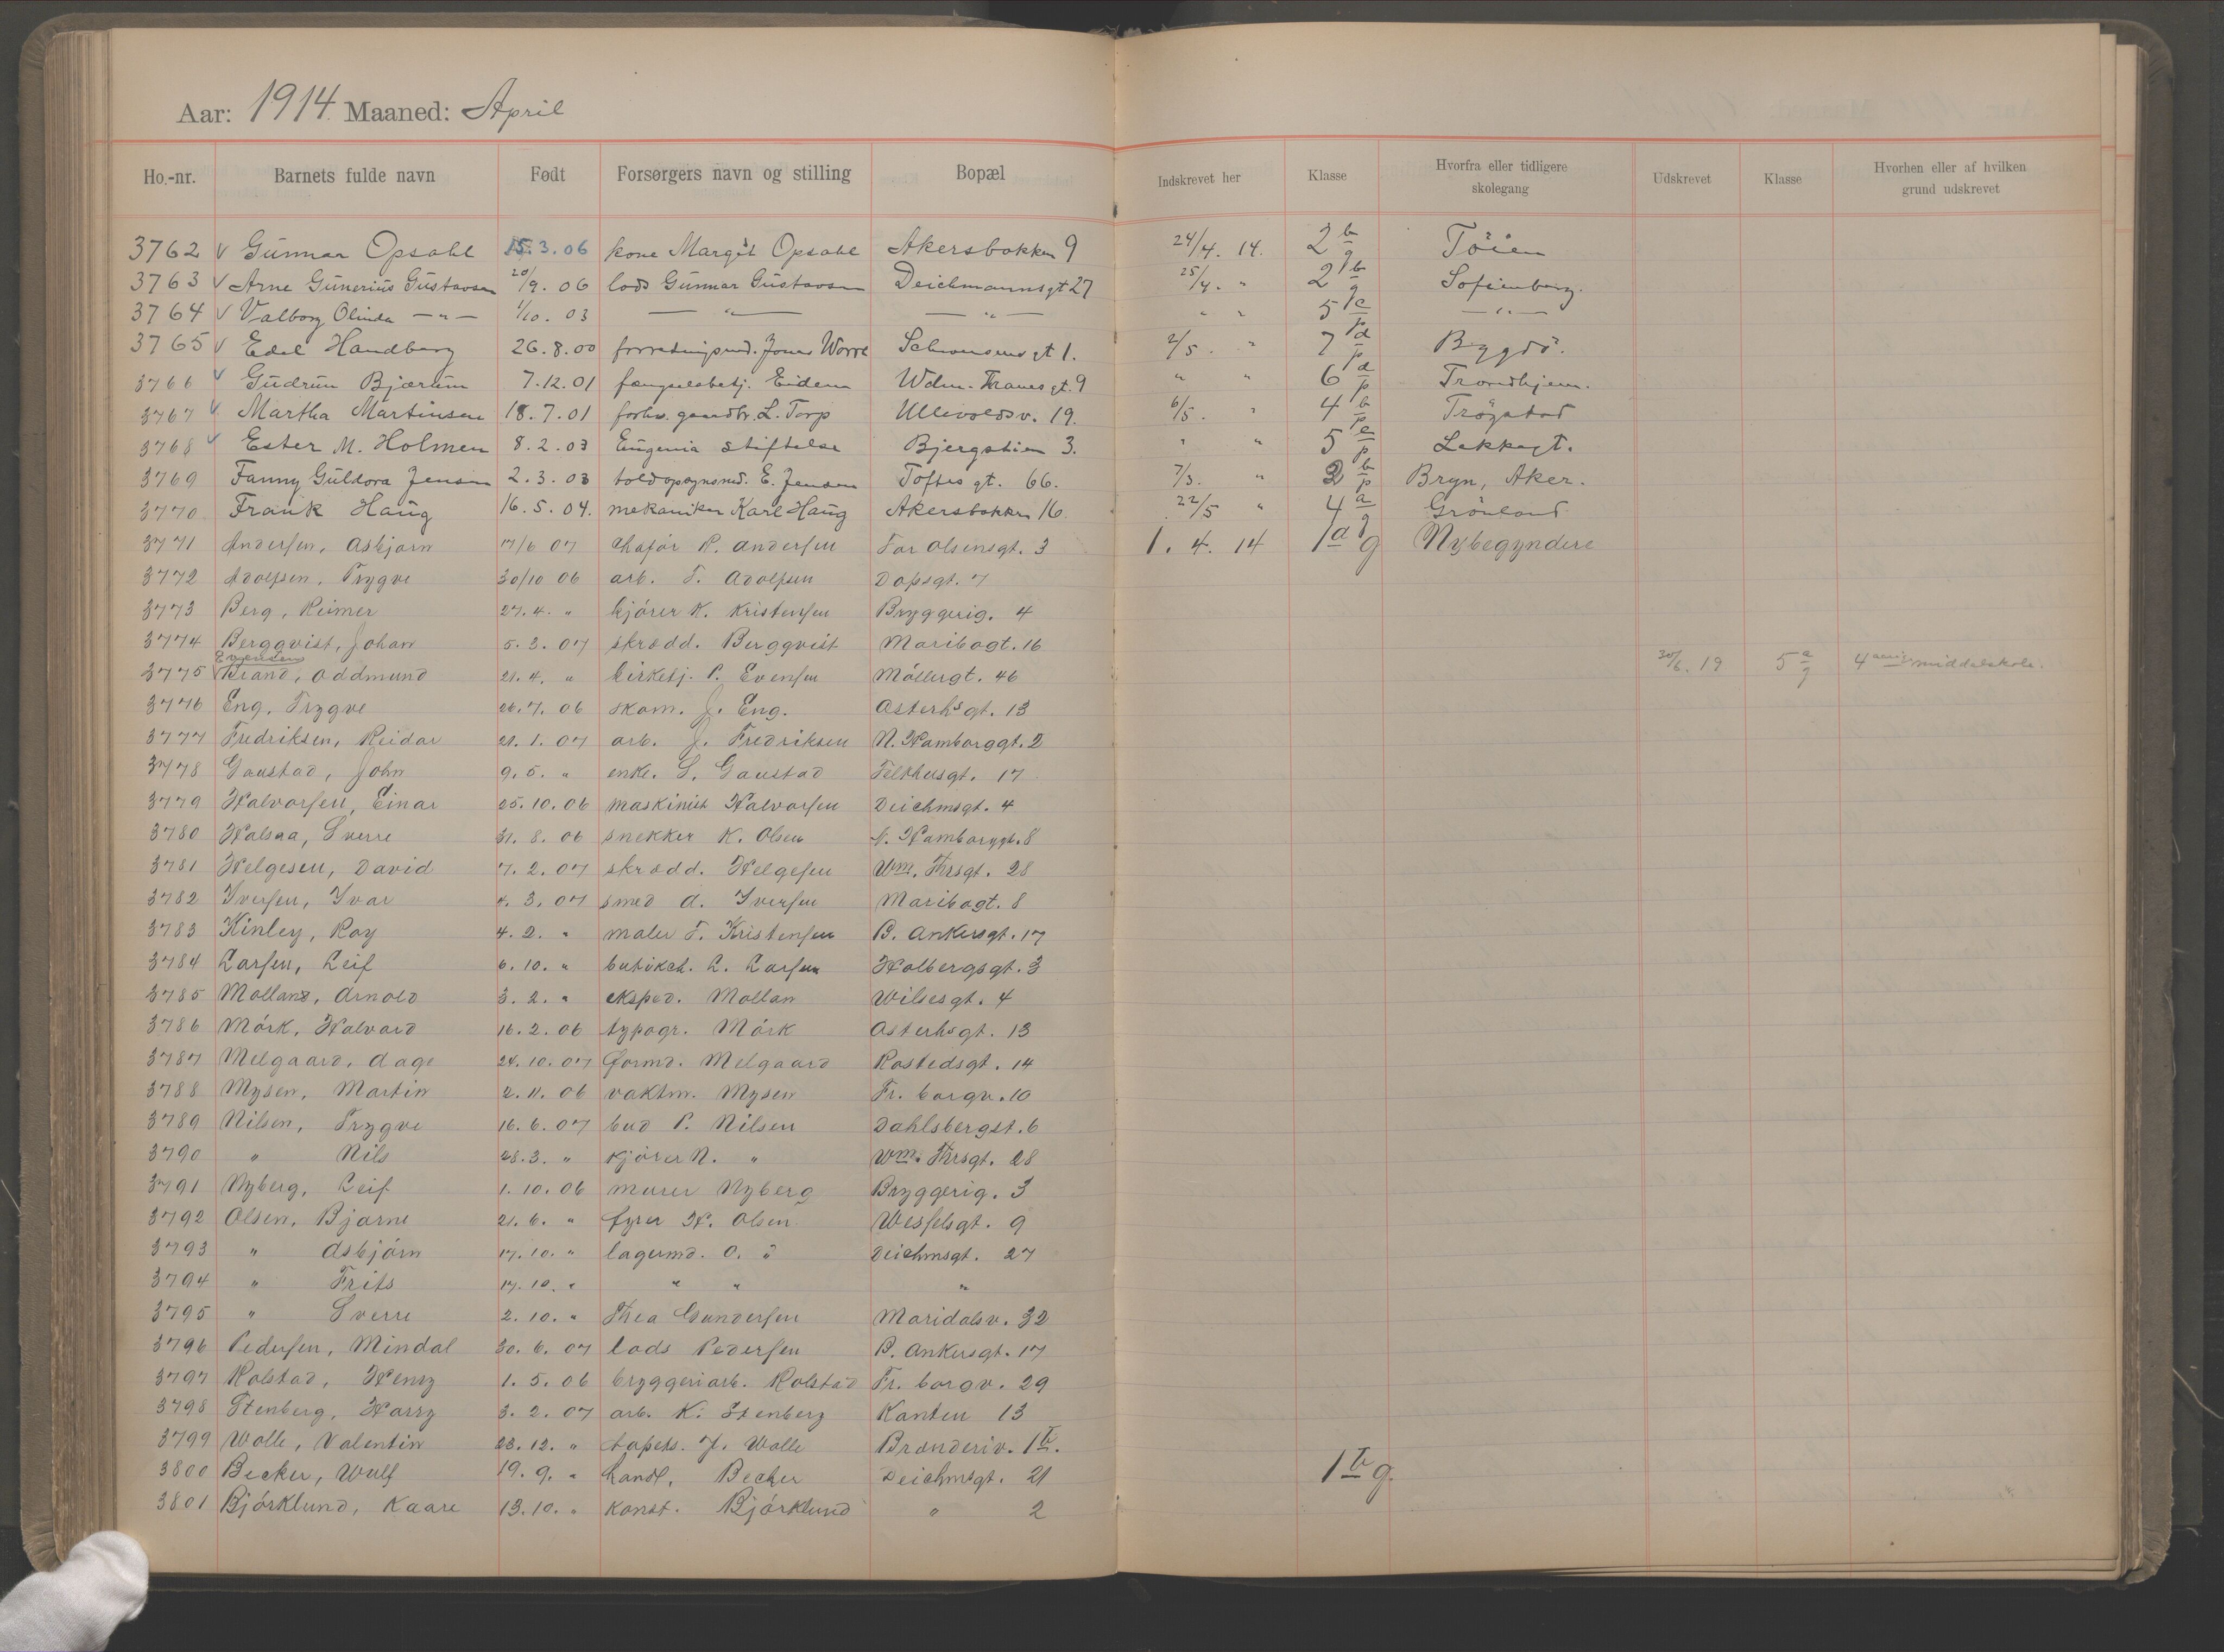 Aar: 1914. Maaned: April
Ho.-nr. Barnets fulde navn Født Forsørgers navn og stilling Bopæl Indskrevet her Klasse Hvorfra eller tidligere skolegang Udskrevet Klasse Hvorhen eller af hvilken grund udskrevet
3762 v Gunnar Opsahl 15.3.06 kone Margit Opsahl Akersbakken 9 24/4. 14. 2 b g Töien
3763 v Arne Gunerius Gustavsen 20/9. 06 lods Gunnar Gustavsen Deichmannsgt 27 25/4. " 2 b g Sofienberg.
3764 v Valborg Olinda — " — 1/10. 03 — " — — " — " " 5 c p — " —
3765 v Edel Handberg 26.8.00 Jonas Worre gt 1. 2/5. " 7 d p Bygdö.
3766 v Gudrun Bjærum 7.12.01 fængselsbetj. Eidem Wdm. Thranes gt. 9 " " 6 d p Trondhjem.
3767 v Martha Martinsen 18.7.01 forhv. gaardbr. L. Torp Ullevoldsv. 19. 6/5. " 4 b p Trögstad
3768 v Ester M. Holmen 8.2.03 Eugenia stiftelse Bjergstien 3. " " 5 e p Lakkegt.
3769 Fanny Guldora Jensen 2.3.03 toldopsynsmd. E. Jensen Toftes gt. 66. 7/3. " 3 b p Bryn, Aker.
3770 Frank Haug 16.5.04. mekaniker Karl Haug Akersbakken 16 22/5 " 4 a g Grönland
3771 Andersen, Asbjørn 17/6 07 chafør R. Andersen Tor Olsensgt. 3 1. 4. 14 1 a g Nybegyndere
3772 Adolfsen, Trygve 30/10 06 arb. T. Adolfsen Dopsgt. 7
3773 Berg, Reimer 27.4. " kjører K. Kristensen Bryggerig. 4
3774 Bergqvist, Johan 5.3.07 skrædd. Bergqvist Maribogt. 16
Evensen
3775 v Brand, Oddmund 21.4. " kirketj. P. Evensen Möllergt. 46 30/6. 19 5 a g 4 aarig middelskole.
3776 Eng, Trygve 26.7.06 skom. J. Eng. Asterhsgt. 13
3777 Fredriksen, Reidar 21.1.07 arb. J. Fredriksen N. Hamborggt. 2
3778 Gaustad, John 9.5. " enke. S. Gaustad Feltkusgt. 17
3779 Halvorsen, Einar 25.10.06 maskinist Halvorsen Deichmsgt. 4
3780 Halsaa, Sverre 31.8.06 snekker K. Olsen N. Hamborggt. 8
3781 Helgesen, David 7.2.07 skrædd. Helgesen Wm. Thrsgt. 28
3782 Iversen, Ivar 4.3.07 smed A. Iversen Maribogt. 8
3783 Kinley, Roy 4.2. " maler T. Kristensen B. Ankersgt. 17
3784 Larsen, Leif 6.10. " butikch. L. Larsen Holbergsgt. 3
3785 Molland, Arnold 3.2. " ekspd. Mollan Wilsesgt. 4
3786 Mørk, Halvard 16.2.06 typogr. Mørk Asterhsgt. 13
3787 Melgaard, Aage 24.10.07 formd. Melgaard Rostedsgt. 14
3788 Mysen, Martin 2.11.06 vaktm. Mysen Fr. borgv. 10
3789 Nilsen, Trygve 16.6.07 bud P. Nilsen Dahlsbergst. 6
3790 " Nils 28.3. " kjører N. " Wm. Thrsgt. 28
3791 Nyberg, Leif 1.10.06 murer Nyberg Bryggerig. 3
3792 Olsen, Bjarne 21.6. " fyrer H. Olsen Wesselsgt. 9
3793 " Asbjørn 17.10. " lagermd. O. " Deichmsgt. 27
3794 " Frits 17.10. " " " "
3795 " Sverre 2.10. " Thea Gundersen Maridalsv. 32
3796 Pedersen, Mindal 30.6.07 lods Pedersen B. Ankersgt. 17
3797 Rolstad, Henry 1.5.06 bryggeriarb. Rolstad Fr. borgv. 29
3798 Stenberg, Harry 3.2.07 arb. K. Stenberg Kanten 13
3799 Wolle, Valentin 23.12. " tapets. J. Wolle Brænderiv. 1 b.
3800 Becker, Wulf 19.9. " handl. Becker Deichmsgt. 21 1 b g.
3801 Björklund, Kaare 13.10. " konst. Björklund " 2